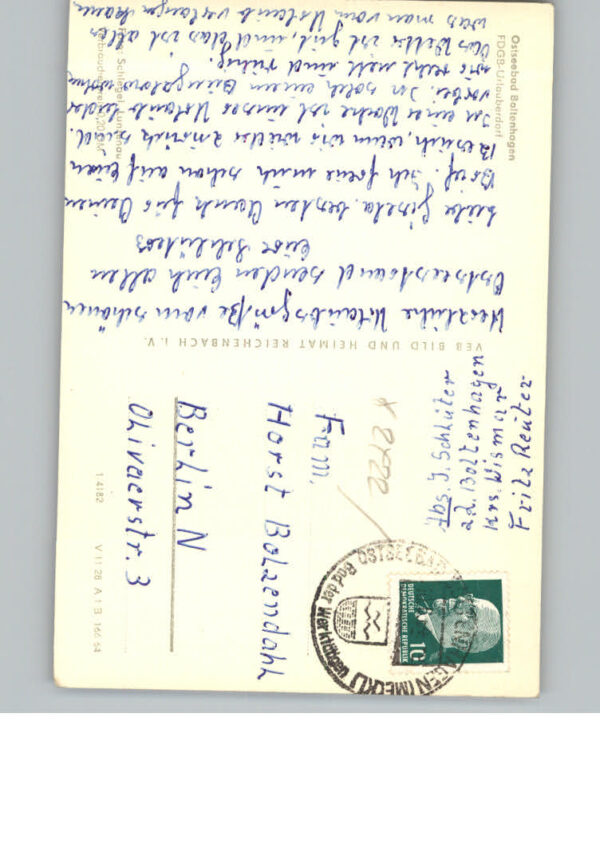 Ostseebad Boltenhagen
FDGB-Urlauberdorf
Herzliche Urlaubsgrüße vom schönen
Ostseestrand senden Euch allen
Eure Schlüters
Liebe Gisela, besten Dank für Deinen
Brief. Ich freue mich schon auf Euren
Besuch, wenn wir wieder zurück sind.
In einer Woche ist unser Urlaub leider
vorbei. In solch einem Bungalow wohnen
wir recht nett und ruhig.
Das Wetter ist gut und das ist alles
was man vom Urlaub verlangen kann.
Foto: Schlegel, Lunzenau
Verbraucherpreis 0,20 DM
VEB BILD UND HEIMAT REICHENBACH i. V.
1 4182
V 11 28 A 1 B 166 54
Abs. J. Schlüter
z.Z. Boltenhagen
Krs. Wismar
Fritz Reuter
OSTSEEBAD BOLTENHAGEN (MECKL)
Bad der Werktätigen
DEUTSCHE
DEMOKRATISCHE REPUBLIK
10
Fam.
Horst Bolzendahl
Berlin N
Olivaerstr. 3